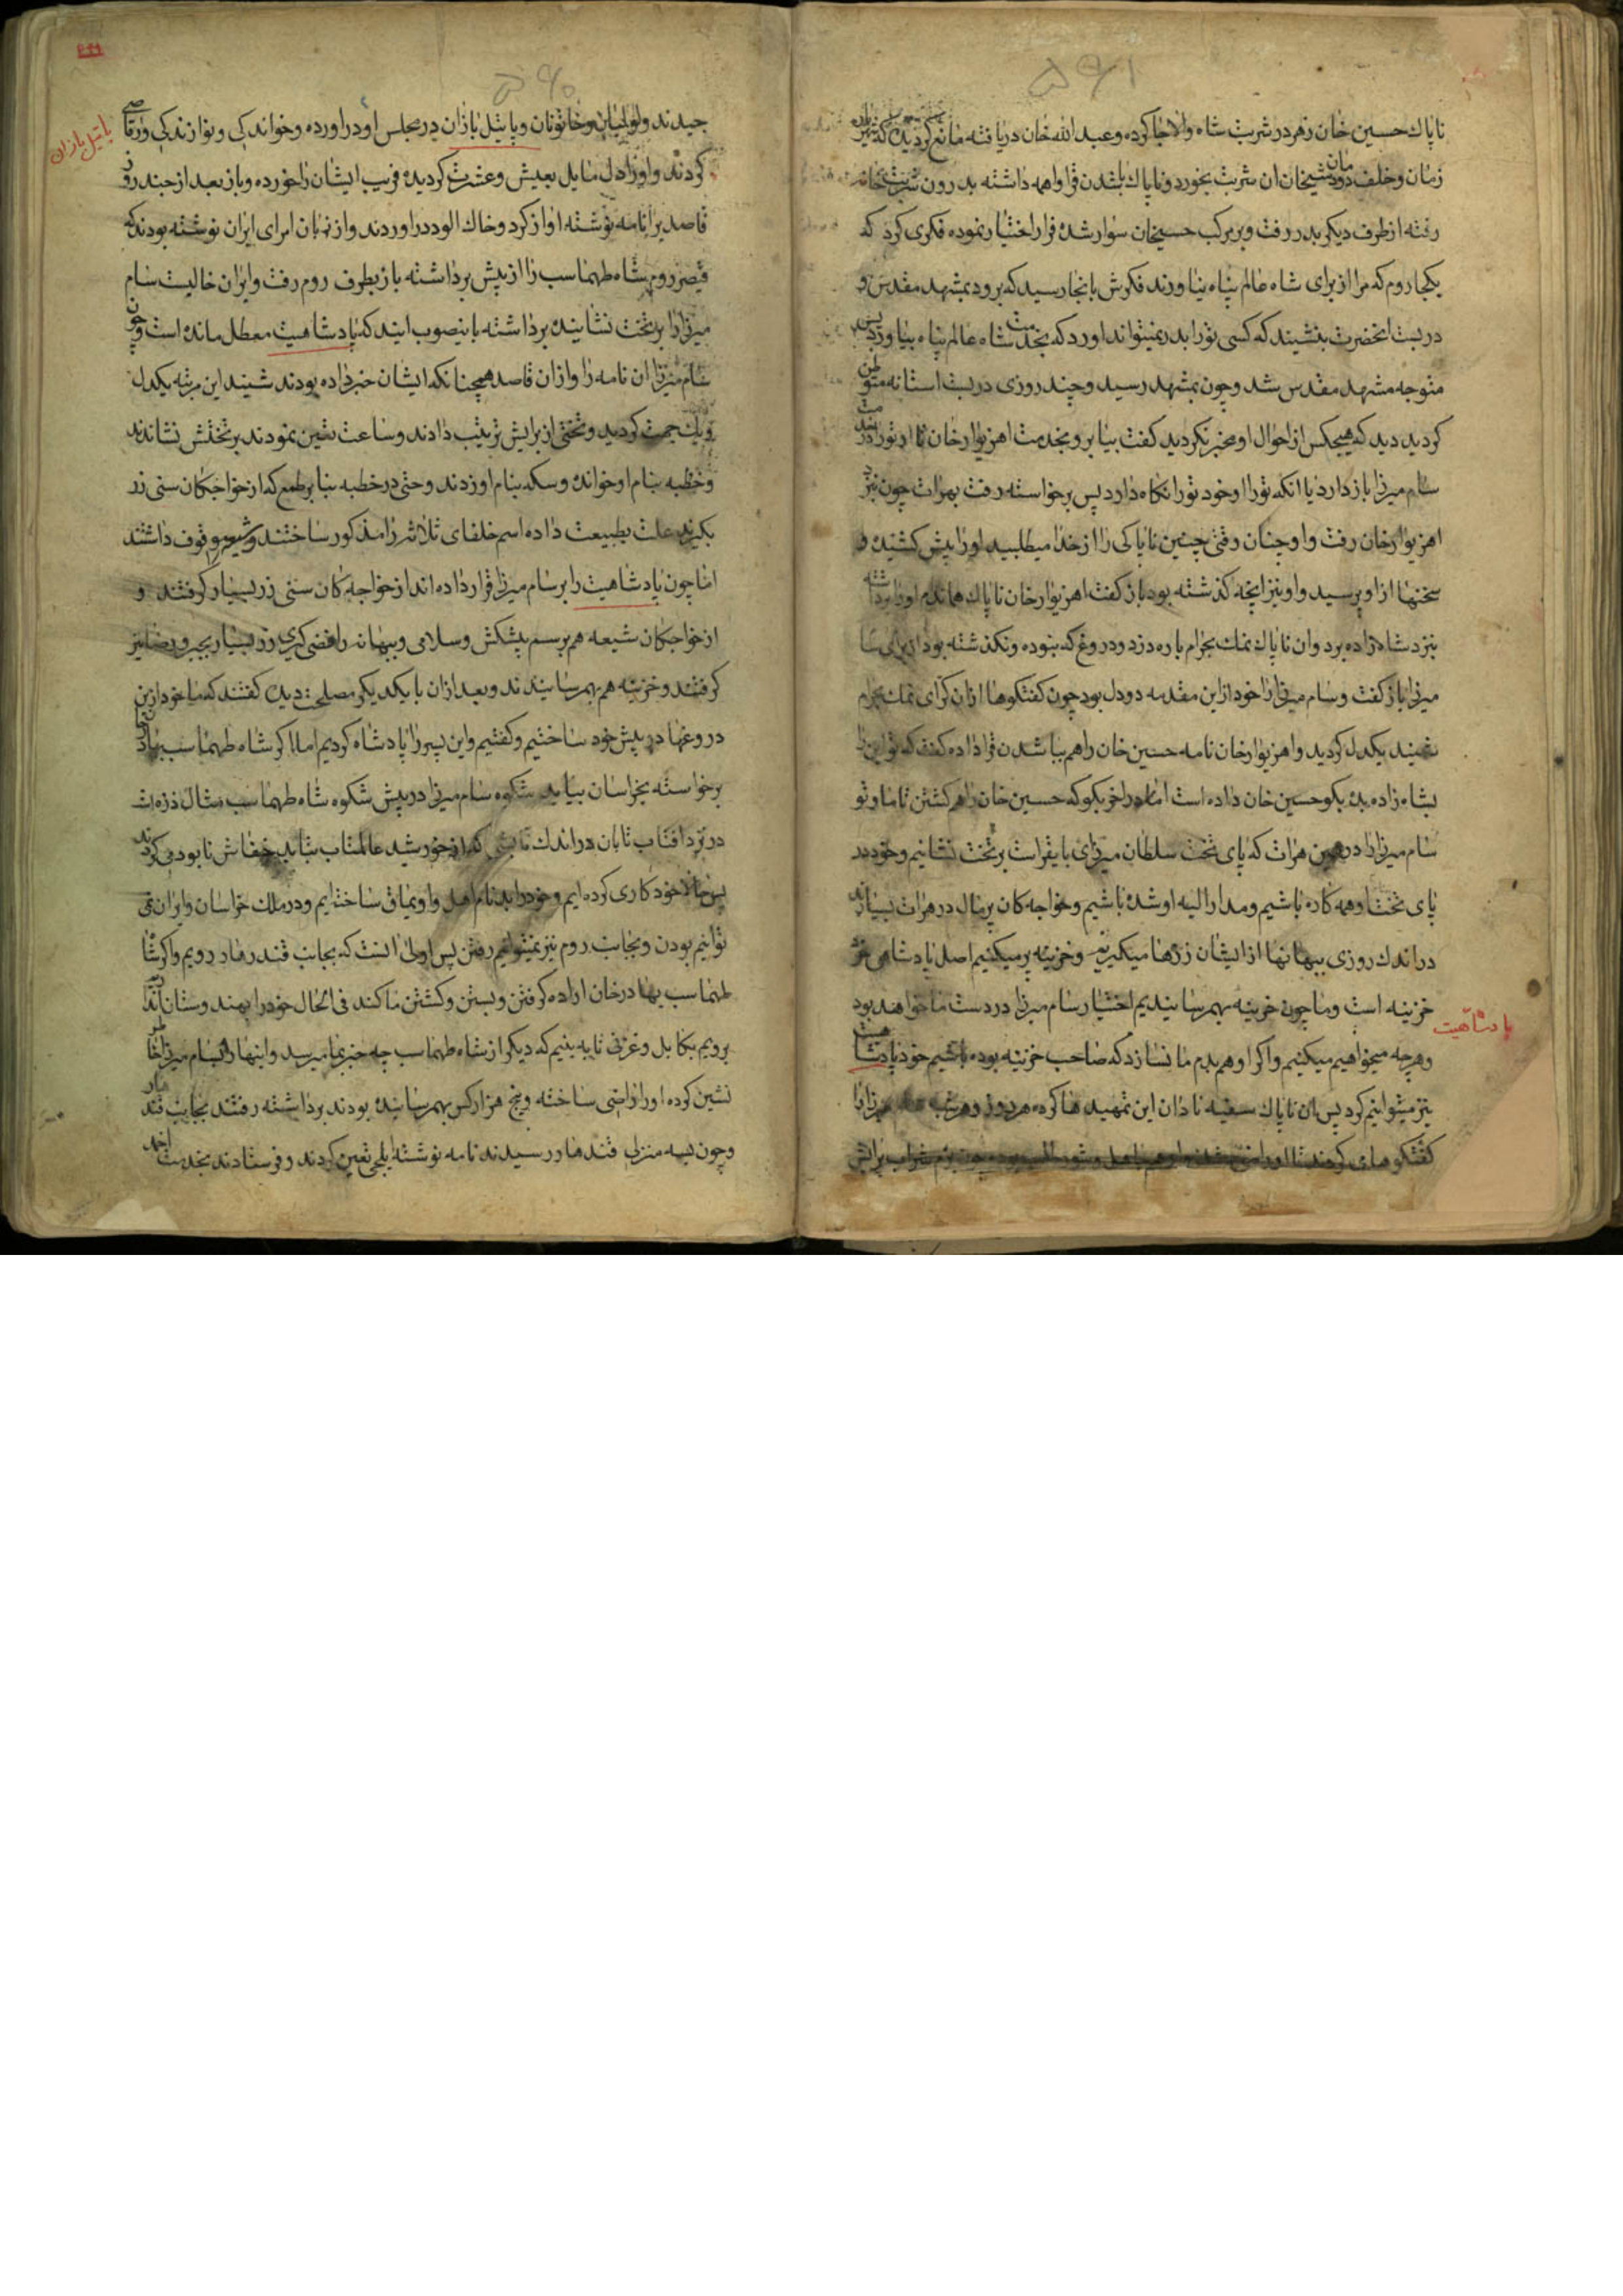 ۵۹۱
ناپاك حسین خان زهر در شربت شاه والاجا كرده و عبدالله خان دریافته مانع كردید كه
زمان و خلف دودمان شیخان ان شربت بخورد و ناپاك باشدن قرا واهمه داشته بدرون شربت خانه
رفته از طرف دیكر بدر رفت و بر مركب حسینخان سوار شده فرار اختیار نموده فكری كرد كه
بكجا روم كه مرا از برای شاه عالم پناه نیاورند فكرش بانجا رسید كه برود بمشهد مقدس و
در بست انحضرت بنشیند كه كسی تو را بدر نمیتواند اورد كه بخدمت شاه عالم پناه بیاورد پس
متوجه مشهد مقدس شد و چون بمشهد رسید و چند روزی در بست استانه متوطن
كردید دید كه هیچكس از احوال او مخبر نكردید كفت بیا برو بخدمت اهزیوار خان تا او تو را در خدمت
سام میرزا باز دارد یا انكه تو را او خود تو را نكاه دارد پس برخواسته رفت بهرات چون نزد
اهزیوار خان رفت و او چنان وقتی چنین ناپاكی را از خدا میطلبید او را پیش كشیده و
سخنها از او پرسید و او نیز انچه كذشته بود باز كفت اهزیوار خان ناپاك هماندم او را برداشته
نزد شاه زاده برد و ان ناپاك نمك بحرام پاره دزد و دروغ كه نبوده و نكذشته بود از برای سام
میرزا باز كفت و سام میرزا را خود از این مقدمه دو دل بود چون كفتكوها از ان كرای نمك بحرام
شنید یكدل كردید و اهزیوار خان نامه حسین خان را هم بنا شدن قرا داده كفت كه تو این را
بشاه زاده بده بكو حسین خان داده است اما در اخر بكو كه حسین خان را هم كشتن تا ما و تو
سام میرزا را در همین هرات كه پای تخت سلطان میرزای بایقراست بر تخت نشانیم و خود در
پای تخت او همه كاره باشیم و مدار الیه او شده باشیم و خواجه كان پر مال در هرات بسیارند
در اندك روزی ببهانها از ایشان زرها میكیریم و خزینه پر میكنیم اصل پادشاهی زر
خزینه است و ما چون خزینه بهم رسانیدیم اختیار سام میرزا در دست ما خواهد بود
پادشاهیت
و هرچه میخواهیم میكنیم و اكر او هم بدم ما نسازد كه صاحب خزینه بوده باشیم خود پادشاهیت
نیز میتوانیم كرد پس ان ناپاك سفیه نادان این تمهیدها كرده هر روز و هر شب میرزا را
۵۹۰
چیدند و لولیان و خاتونان و پاتیل بازان در مجلس او در اورده و خوانندكی و نوازندكی و رقاصی
پاتیل بازان
كردند و او زاد دل مایل بعیش و عشرت كردیده فریب ایشان را خورده و باز بعد از چند روز
قاصدیرا نامه نوشته اواز كرد و خاك الود در اوردند و از زبان امرای ایران نوشته بودند كه
قیصر روم شاه طهماسب را از پیش برداشته باز بطرف روم رفت و ایران خالیست سام
میرزا را بر تخت نشانیده برداشته باینصوب ایند كه پادشاهیت معطل مانده است و چون
سام میرزا ان نامه را و از ان قاصد همچنانكه ایشان خبر داده بودند شنید این مرتبه یكدل
و یك جهت كردید و تختی از برایش ترتیب دادند و ساعت تعین نمودند بر تختش نشاندند
و خطبه بنام او خوانده و سكه بنام او زدند و حتی در خطبه بنا بر طمع كه از خواجكان سنی زر
بكیرند علت بطبیعت داده اسم خلفای ثلاثه را مذكور ساختند و شیعه موقوف داشتند
اما چون پادشاهیت را بر سام میرزا قرار داده اند از خواجه كان سنی زر بسیار كرفتند و
از خواجكان شیعه هم برسم پیشكش و سلامی و ببهانه رافضی كیری زر بسیار بجبر و رضا نیز
كرفتند و خزینه هم بهم رسانیدند و بعد از ان با یكدیكر مصلحت دیده كفتند كه ما خود از این
دروغها در پیش خود ساختیم و كفتیم و این پسر را پادشاه كردیم اما اكر شاه طهماسب از انجا
برخواسته بخراسان بیاید شكوه سام میرزا در پیش شكوه شاه طهماسب مثال ذره است
در نزد افتاب تابان در اندك تابشی كه از خورشید عالمتاب بتابد خفاش نابود می كردند
پس حالا خود كاری كرده ایم و خود را بدنام اهل و اویماق ساخته ایم و در ملك خراسان و ایران نمی
توانیم بودن و بجانب روم نیز نمیتوانیم رفتن پس اولی انست كه بجانب قندهار رویم و اكر شاه
طهماسب بهادر خان اراده كرفتن و بستن و كشتن ما كند فی الحال خود را بهندوستان اندازیم
برویم بكابل و غزنی تا به بینیم كه دیكر از شاه طهماسب چه خبر بما میرسد و اینها را بسام میرزا
نشین كرده او را راضی ساخته و پنج هزار كس بهم رسانیده بودند برداشته رفتند بجانب قندهار
و چون بسه منزل قندهار رسیدند نامه نوشته ایلچی تعین كردند و فرستادند بخدمت